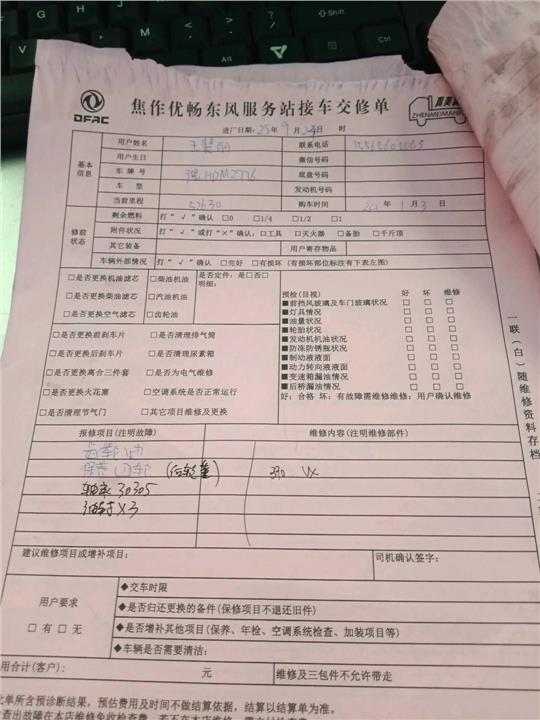 DFAC
焦作优畅东风服务站接车交修单
ZHENMEIMAN
进厂日期:25年9月24日 时
基本信息
用户姓名 联系电话
用户生日 微信号码
车牌号 豫HDM2776 底盘号码
车型 发动机号码
当前里程 52630 购车时间 年1月3日
修前状态
剩余燃料 打“√”确认 □0 □1/4 □1/2 □1
附件状况 打“√”或打“×”确认:□工具 □灭火器 □备胎 □千斤顶
其它装备 用户寄存物品
车辆外部情况 打“√”确认 □完好 □有损坏(有损坏部位标注有下表左图)
□是否更换机油滤芯 □柴油机油 是否定件:是□否□
明细:
□是否更换柴油滤芯 □汽油机油
□是否更换空气滤芯 □齿轮油
预检(目视) 好 坏 维修
■前挡风玻璃及车门玻璃状况 □ □ □
■灯具情况 □ □ □
■油量状况 □ □ □
■轮胎状况 □ □ □
■发动机机油状况 □ □ □
■防冻防锈瓶状况 □ □ □
■制动液液面 □ □ □
■动力转向液液面 □ □ □
■变速箱漏油情况 □ □ □
■后桥漏油情况 □ □ □
好:合格 坏:有故障需维修维修:用户确认维修
□是否更换前刹车片 □是否清理排气筒
□是否更换后刹车片 □是否清理尿素箱
□是否更换离合三件套 □是否为电气维修
□是否更换火花塞 □空调系统是否正常运行
□是否清理节气门 □其它项目维修及更换
一联(白)随维修资料存档
报修项目(注明故障) 维修内容(注明维修部件)
保养
轴承 30305
X3
建议维修项目或增补项目: 司机确认签字:
用户要求
□有 □无
◆交车时限
◆是否归还更换的备件(保修项目不退还旧件)
◆是否增补其他项目(保养、年检、空调系统检查、加装项目等)
◆车辆是否需要清洁:
用合计(客户): 元 维修及三包件不允许带走
此单所含预诊断结果,预估费用及时间不做结算依据,结算以结算单为准。